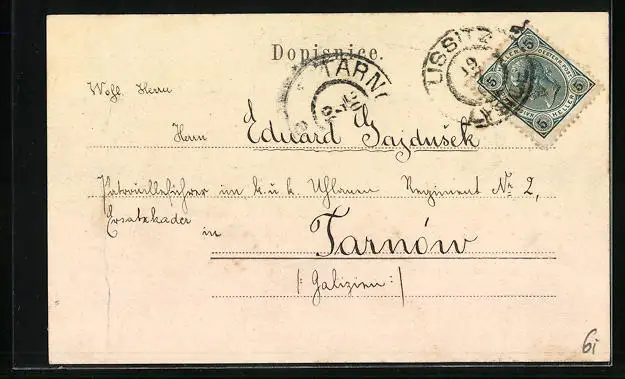 Dopisnice.
LISSITZ
19
TARN
5 5
HELLER
Wohl. Herrn
Herrn Eduard Gajdušek
Patrouilleführer im k. u. k. Uhlanen Regiment Nr. 2,
Ersatzkader
in Tarnów
/: Galizien :/
6i